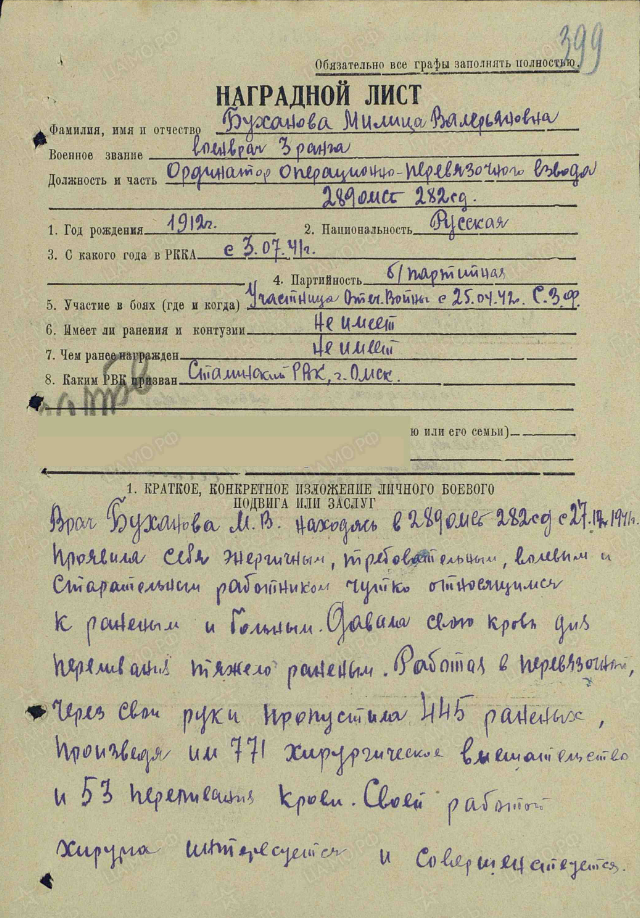 399
Обязательно все графы заполнять полностью.
НАГРАДНОЙ ЛИСТ
Фамилия, имя и отчество Буханова Милица Валерьяновна
Военное звание военврач 3 ранга
Должность и часть Ординатор операционно-перевязочного взвода
289омсб 282сд.
1. Год рождения 1912г. 2. Национальность Русская
3. С какого года в РККА с 3.07.41г.
4. Партийность б/партийная
5. Участие в боях (где и когда) Участница Отеч.Войны с 25.04.42. С.З.Ф.
6. Имеет ли ранения и контузии Не имеет
7. Чем ранее награжден Не имеет
8. Каким РВК призван Сталинский РВК, г. Омск.
ю или его семьи)
1. КРАТКОЕ, КОНКРЕТНОЕ ИЗЛОЖЕНИЕ ЛИЧНОГО БОЕВОГО
ПОДВИГА ИЛИ ЗАСЛУГ
Врач Буханова М.В. находясь в 289омсб 282сд с 27.12.1941г.
проявила себя энергичным, требовательным, волевым и
старательным работником чутко относящимся
к раненым и больным. Давала свою кровь для
переливания тяжело раненым. Работая в перевязочной,
через свои руки пропустила 445 раненых,
произведя им 771 хирургическое вмешательство
и 53 переливания крови. Своей работой
хирурга интересуется и совершенствуется.